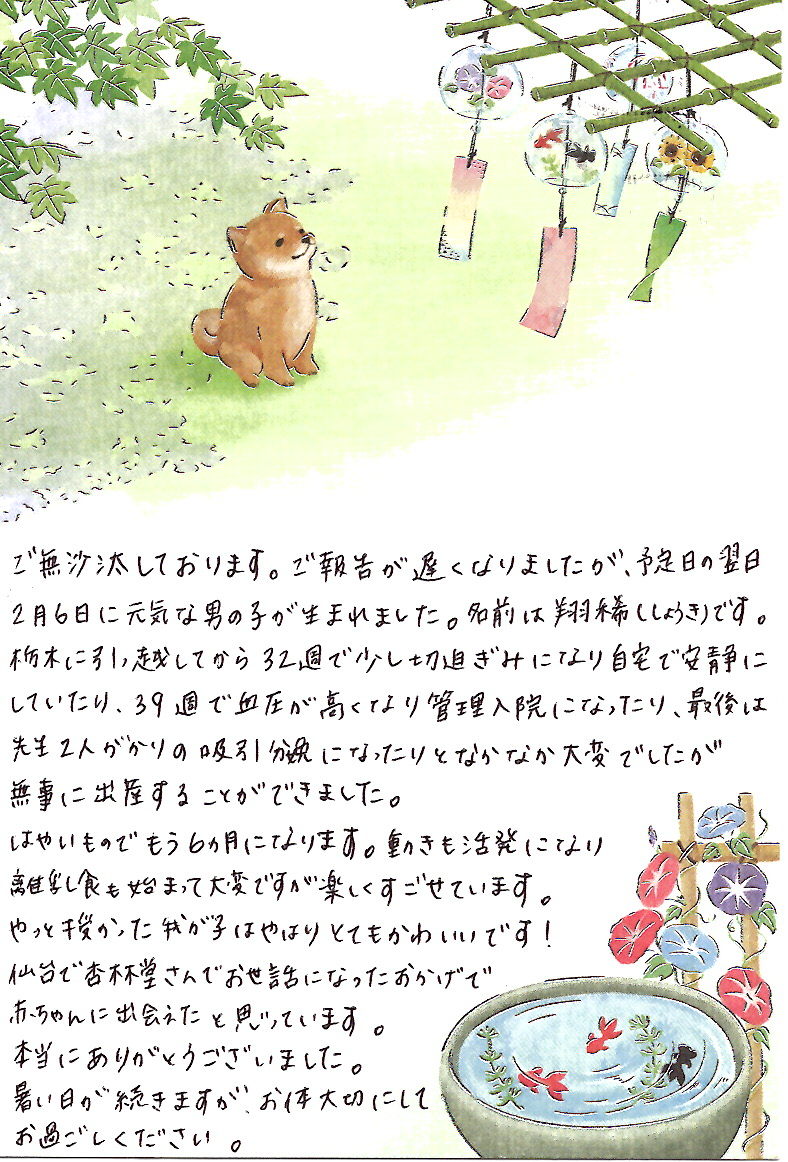 ご無沙汰しております。ご報告が遅くなりましたが、予定日の翌日
2月6日に元気な男の子が生まれました。名前は翔稀(しょうき)です。
栃木に引っ越してから32週で少し切迫ぎみになり自宅で安静に
していたり、39週で血圧が高くなり管理入院になったり、最後は
先生2人がかりの吸引分娩になったりとなかなか大変でしたが
無事に出産することができました。
はやいものでもう6カ月になります。動きも活発になり
離乳食も始まって大変ですが楽しくすごせています。
やっと授かった我が子はやはりとてもかわいいです!
仙台で杏林堂さんでお世話になったおかげで
赤ちゃんに出会えたと思っています。
本当にありがとうございました。
暑い日が続きますが、お体大切にして
お過ごしください。